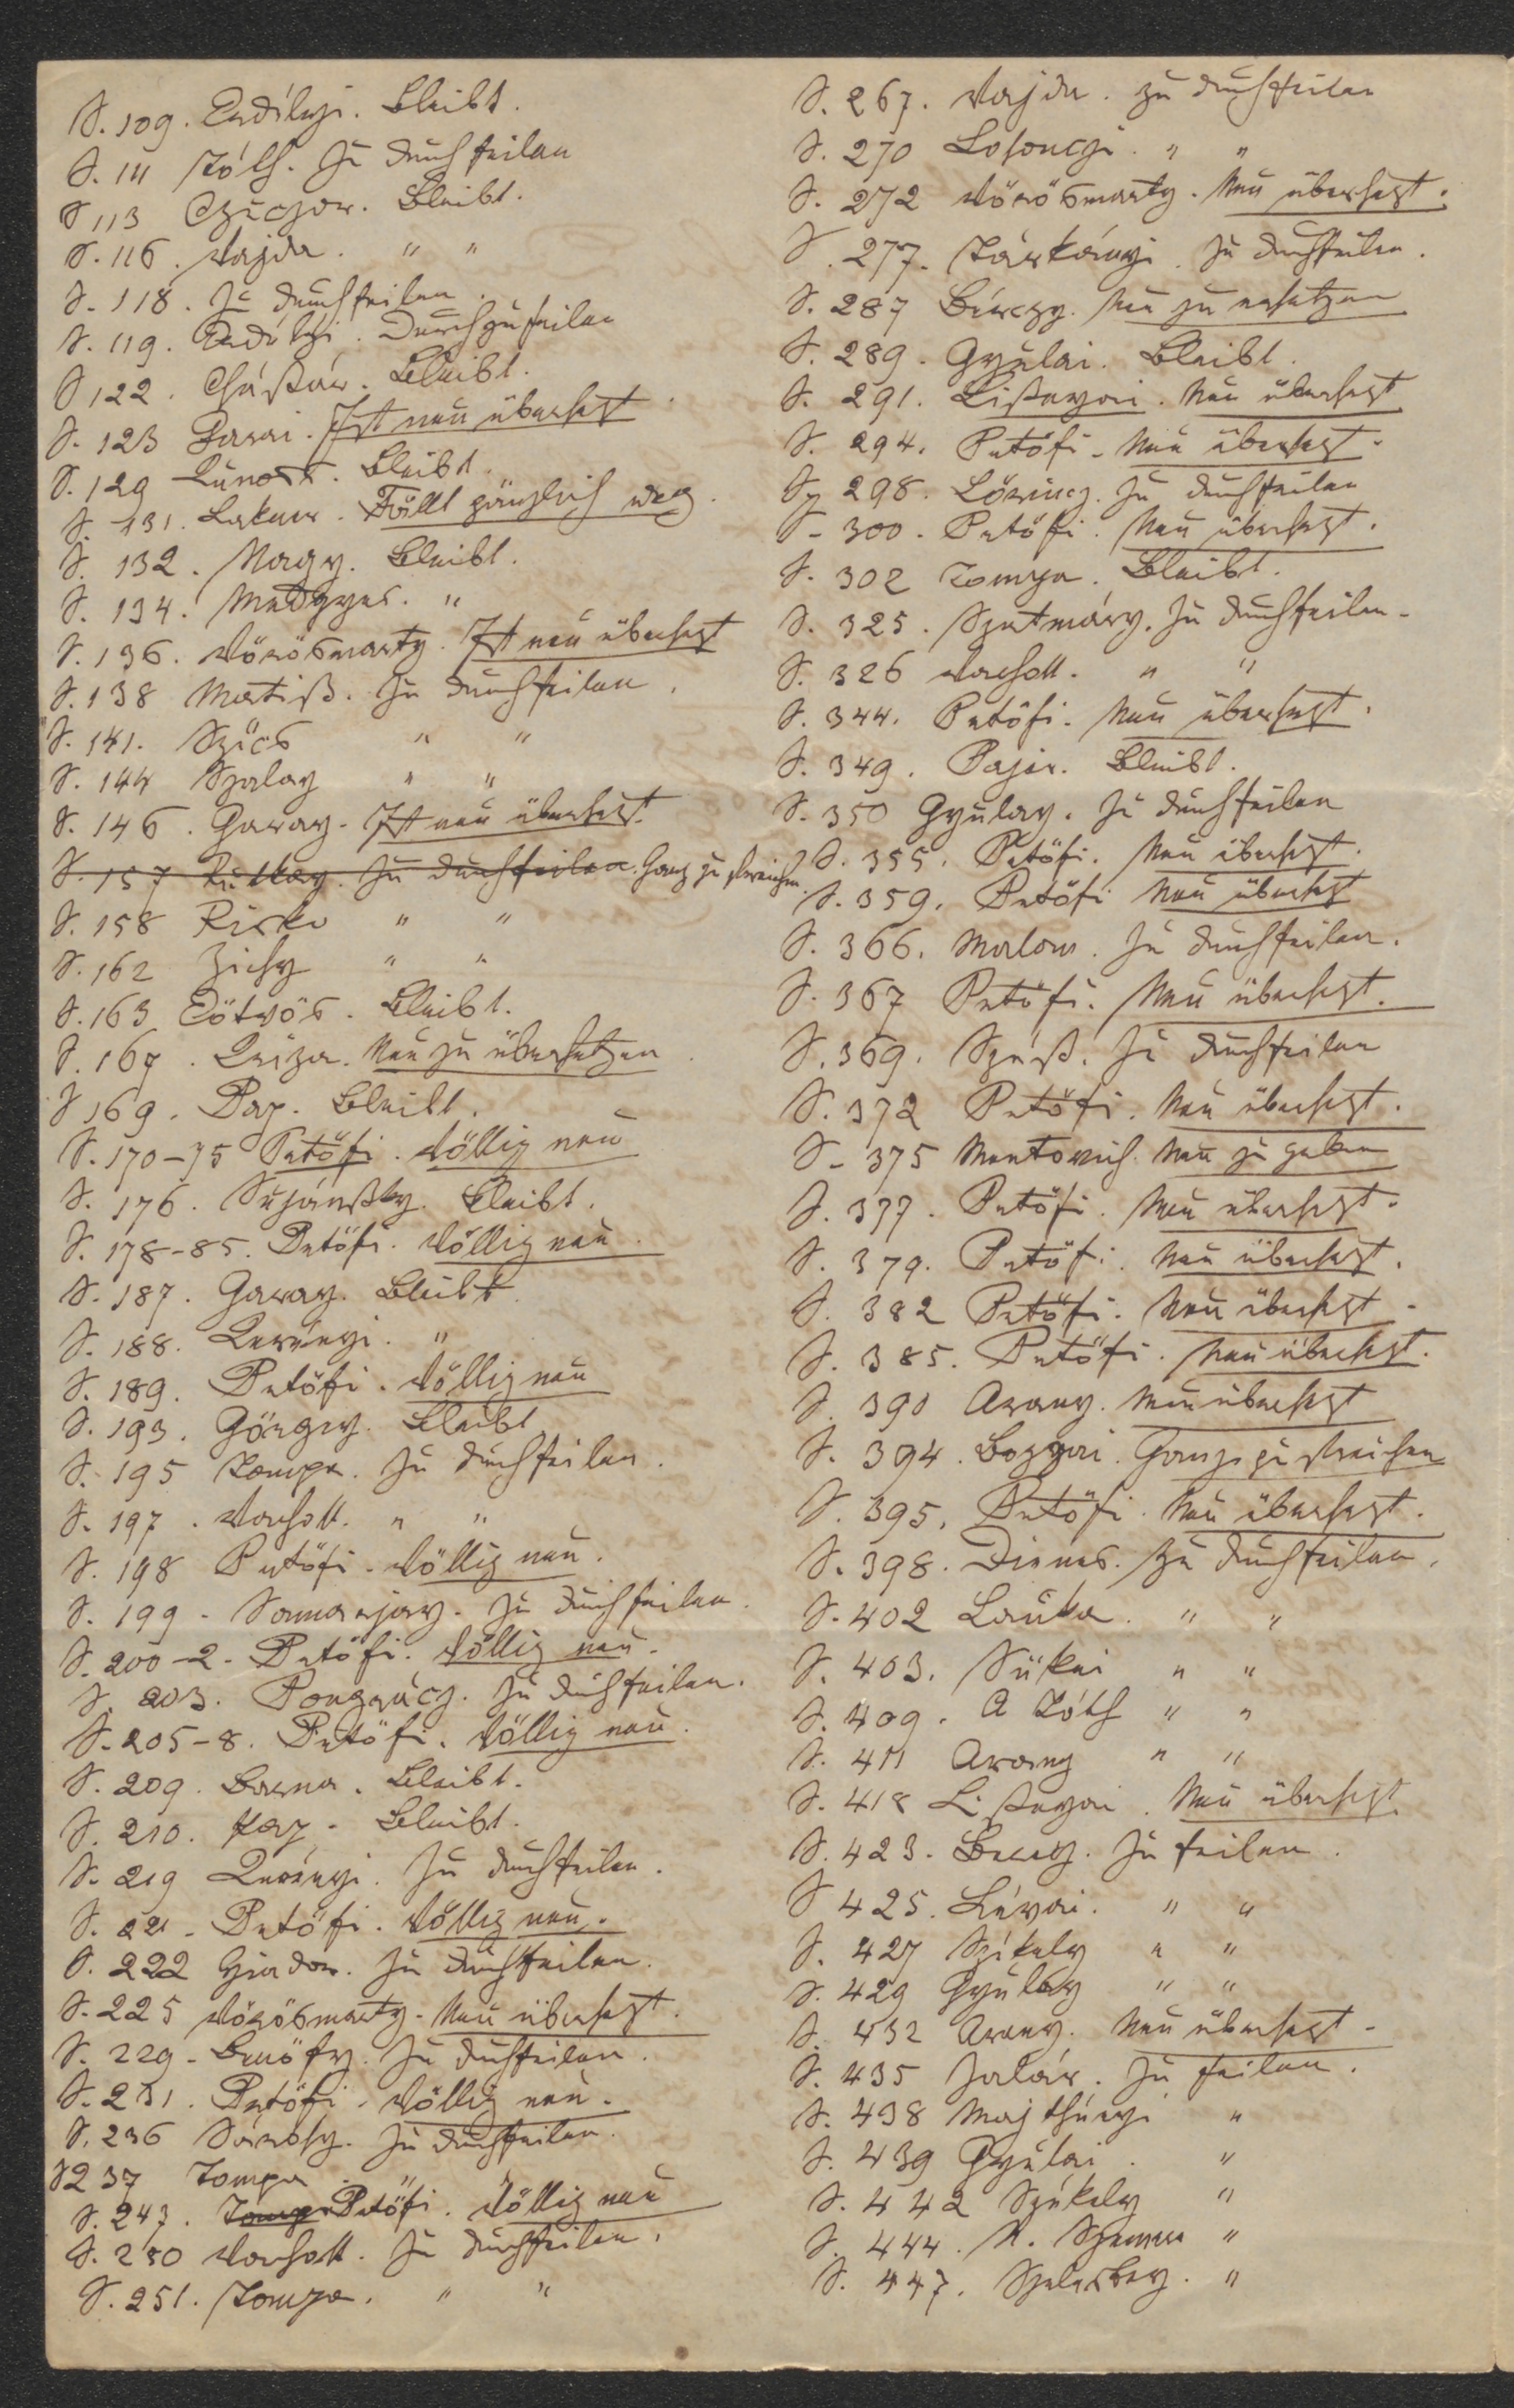 S. 109. Erdélyi. Bleibt.
S. 111 Tóth. Zu durchfeilen
S 113 Czuczor. Bleibt.
S. 116. Vajda. " "
S. 118. Zu durchfeilen.
S. 119. Erdélyi. Durchzufeilen
S 122. Császár. Bleibt.
S. 123 Garai. Ist neu übersezt.
S. 129 Kunoss. Bleibt.
S. 131. Lakner. Fällt gänzlich weg.
S. 132. Nagy. Bleibt.
S. 134. Medgyes. "
S. 136. Vörösmarty. Ist neu übersezt
S. 138 Matiß. Zu durchfeilen.
S. 141. Szücs " "
S. 144 Szalay " "
S. 146. Garay. Ist neu übersezt.
S. 157 Ruttkay. Zu durchfeilen. Ganz zu streichen.
S. 158 Risko " "
S. 162 Zichy " "
S. 163 Eötvös. Bleibt.
S. 167. Beöza. Neu zu übersetzen.
S 169. Pap. Bleibt.
S. 170-75 Petöfi. Völlig neu
S. 176. Sujánßky. Bleibt.
S. 178-85. Petöfi. Völlig neu.
S. 187. Garay. Bleibt
S. 188. Kerényi. "
S. 189. Petöfi. Völlig neu
S. 193. Görgey. Bleibt
S. 195 Tompa. Zu durchfeilen.
S. 197. Vachott. " "
S. 198 Petöfi. Völlig neu.
S. 199. Samarjay. Zu durchfeilen.
S. 200-2. Petöfi. Völlig neu.
S. 203. Pongrácz. Zu durchfeilen.
S. 205-8. Petöfi. Völlig neu.
S. 209. Barna. Bleibt.
S. 210. Pap. Bleibt.
S. 219 Kerényi. Zu durchfeilen.
S. 221. Petöfi. Völlig neu.
S. 222 Hiador. Zu durchfeilen.
S. 225 Vörösmarty. Neu übersezt.
S. 229. Benöfy. Zu durchfeilen.
S. 231. Petöfi. Völlig neu.
S. 236 Sárosy. Zu durchfeilen.
S 237 Tompa "
S. 243. Tompa Petöfi. Völlig neu
S. 250 Vachott. Zu durchfeilen.
S. 251. Tompa. " "
S. 267. Vajda. Zu durchfeilen
S. 270 Losonczi. " "
S. 272 Vörösmarty. Neu übersezt.
S. 277. Tárkányi. Zu durchfeilen.
S. 287 Bérczy. Neu zu ersetzen
S. 289. Gyulai. Bleibt.
S. 291. Lißnyai. Neu übersezt
S. 294. Petöfi. Neu übersezt.
S. 298. Lörincz. Zu durchfeilen
S. 300. Petöfi. Neu übersezt.
S. 302 Tompa. Bleibt.
S. 325. Szatmáry. Zu durchfeilen.
S. 326 Vachott. " "
S. 344. Petöfi. Neu übersezt.
S. 349. Pajor. Bleibt.
S. 350 Gyulay. Zu durchfeilen
S. 355. Petöfi. Neu übersezt.
S. 359. Petöfi Neu übersezt
S. 366. Malom. Zu durchfeilen.
S. 367 Petöfi. Neu übersezt.
S. 369. Szász. Zu durchfeilen
S. 372 Petöfi. Neu übersezt.
S. 375 Mentovich. Neu zu geben
S. 377. Petöfi. Neu übersezt.
S. 379. Petöfi. Neu übersezt.
S. 382 Petöfi. Neu übersezt.
S. 385. Petöfi. Neu übersezt.
S. 390 Arany. Neu übersezt
S. 394. Bozzai. Ganz zu streichen
S. 395. Petöfi. Neu übersezt.
S. 398. Dienes. Zu durchfeilen.
S. 402 Lauka. " "
S. 403. Sükei " "
S. 409. A Tóth " "
S. 411 Arany " "
S. 418 Lißnyai. Neu übersezt
S. 423. Berecz. Zu feilen.
S 425. Lévai. " "
S. 427 Székely " "
S. 429 Gyulay " "
S. 432 Arany. Neu übersezt.
S. 435 Zalár. Zu feilen.
S. 438 Majthényi "
S. 439 Gyulai. "
S. 442 Székely "
S. 444. M. Szemere "
S. 447. Szelesley. "